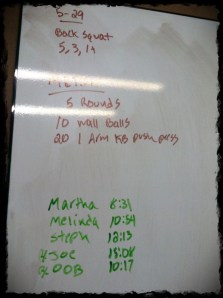 5-29
Back squat
5, 3, 1+
METCON
5 Rounds
10 Wall Balls
20 1 Arm KB push press
Martha 8:31
Melinda 10:54
Steph 12:13
Joe 15:08
BOOB 10:17